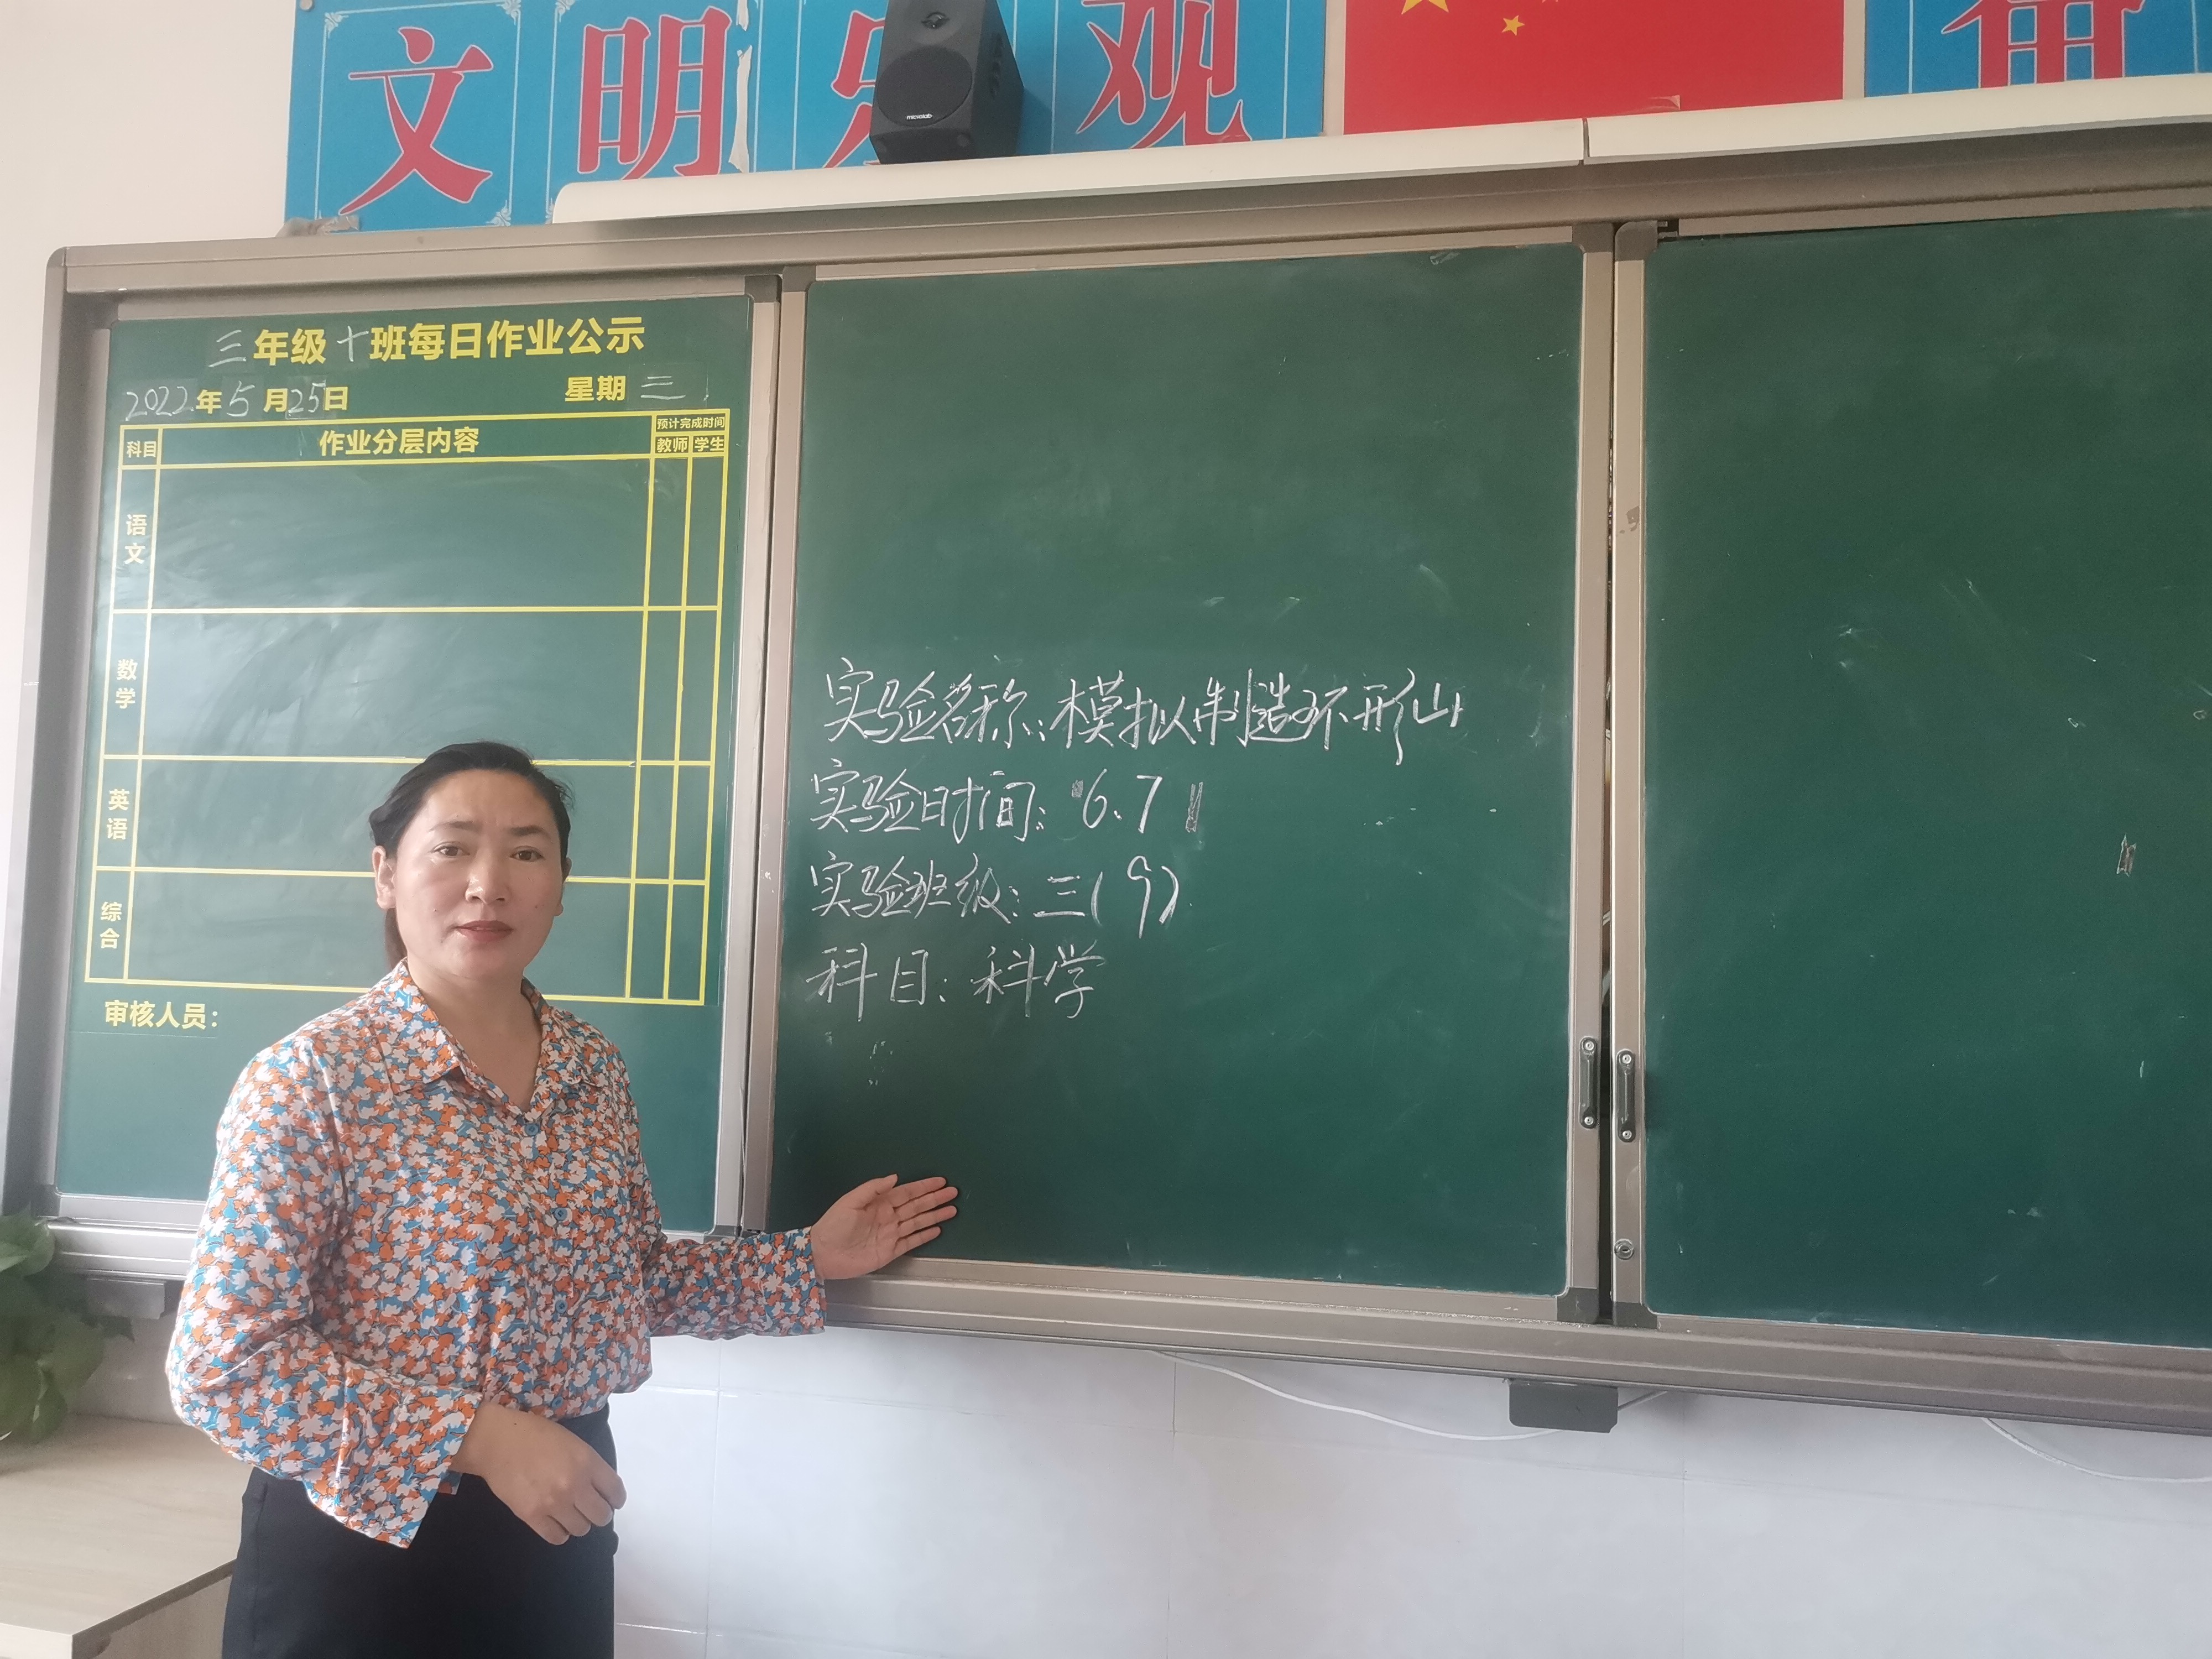 文明 观
microlab
三年级十班每日作业公示
2022年5月25日 星期三
科目 作业分层内容 预计完成时间
教师 学生
语文
数学
英语
综合
审核人员：
实验名称：模拟制造环形山
实验时间：6.7
实验班级：三(9)
科目：科学